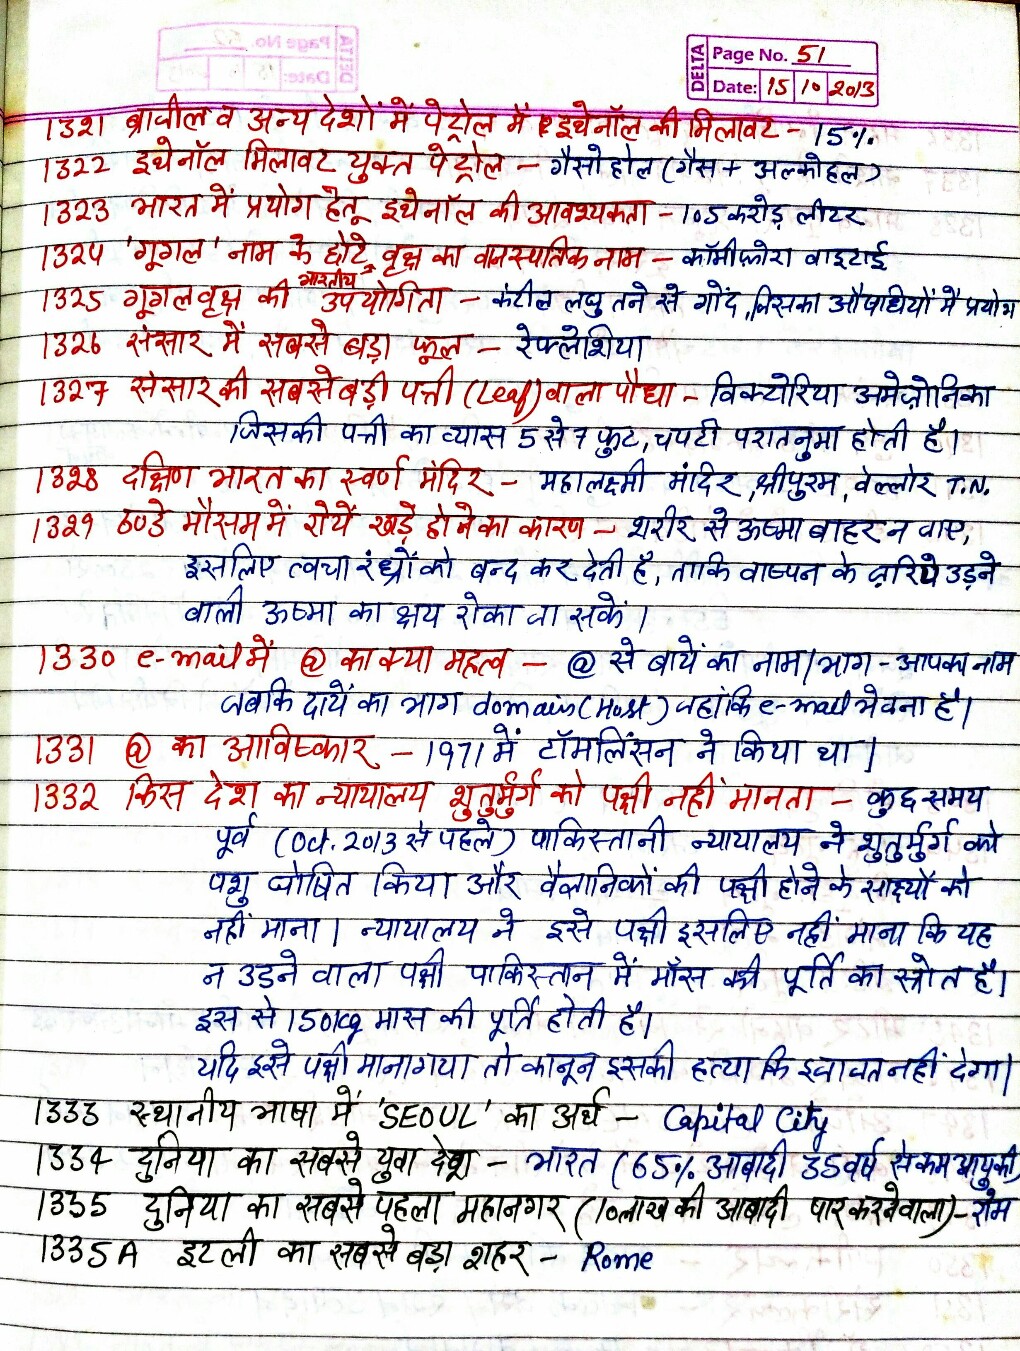 DELTA
Page No. 51
Date: 15 10 2013
1321 ब्राजील व अन्य देशों में पेट्रोल में इथेनॉल की मिलावट - 15%
1322 इथेनॉल मिलावट युक्त पेट्रोल - गैसोहोल (गैस + अल्कोहल)
1323 भारत में प्रयोग हेतू इथेनॉल की आवश्यकता - 105 करोड़ लीटर
1324 'गूगल' नाम के छोटे वृक्ष का वानस्पतिक नाम - कॉमीफ़ोरा वाइटाई
1325 गूगल वृक्ष की भारतीय उपयोगिता - कंटील लघु तने से गोंद, जिसका औषधियों में प्रयोग
1326 संसार में सबसे बड़ा फूल - रेफ्लेशिया
1327 संसार की सबसे बड़ी पत्ती (Leaf) वाला पौधा - विक्टोरिया अमेज़ोनिका
जिसकी पत्ती का व्यास 5 से 7 फुट, चपटी परातनुमा होती है।
1328 दक्षिण भारत का स्वर्ण मंदिर - महालक्ष्मी मंदिर, श्रीपुरम, वेल्लोर T.N.
1329 ठण्डे मौसम में रोयें खड़े होने का कारण - शरीर से ऊष्मा बाहर न जाए,
इसलिए त्वचा रंध्रों को बन्द कर देती है, ताकि वाष्पन के ज़रिये उड़ने
वाली ऊष्मा का क्षय रोका जा सकें।
1330 e-mail में @ का क्या महत्व - @ से बायें का नाम/भाग - आपका नाम
जबकि दायें का भाग domain (Host) जहां कि e-mail भेजना है।
1331 @ का आविष्कार - 1971 में टॉमलिंसन ने किया था।
1332 किस देश का न्यायालय शुतुर्मुर्ग को पक्षी नहीं मानता - कुछ समय
पूर्व (Oct. 2013 से पहले) पाकिस्तानी न्यायालय ने शुतुर्मुर्ग को
पशु घोषित किया और वैज्ञानिकों की पक्षी होने के साक्ष्यों को
नहीं माना। न्यायालय ने इसे पक्षी इसलिए नहीं माना कि यह
न उड़ने वाला पक्षी पाकिस्तान में माँस की पूर्ति का स्त्रोत है।
इस से 150kg मास की पूर्ति होती है।
यदि इसे पक्षी माना गया तो कानून इसकी हत्या कि इजाजत नहीं देगा।
1333 स्थानीय भाषा में 'SEOUL' का अर्थ - Capital City
1334 दुनिया का सबसे युवा देश - भारत (65% आबादी 35 वर्ष से कम आयु की)
1335 दुनिया का सबसे पहला महानगर (10 लाख की आबादी पार करने वाला) - रोम
1335A इटली का सबसे बड़ा शहर - Rome